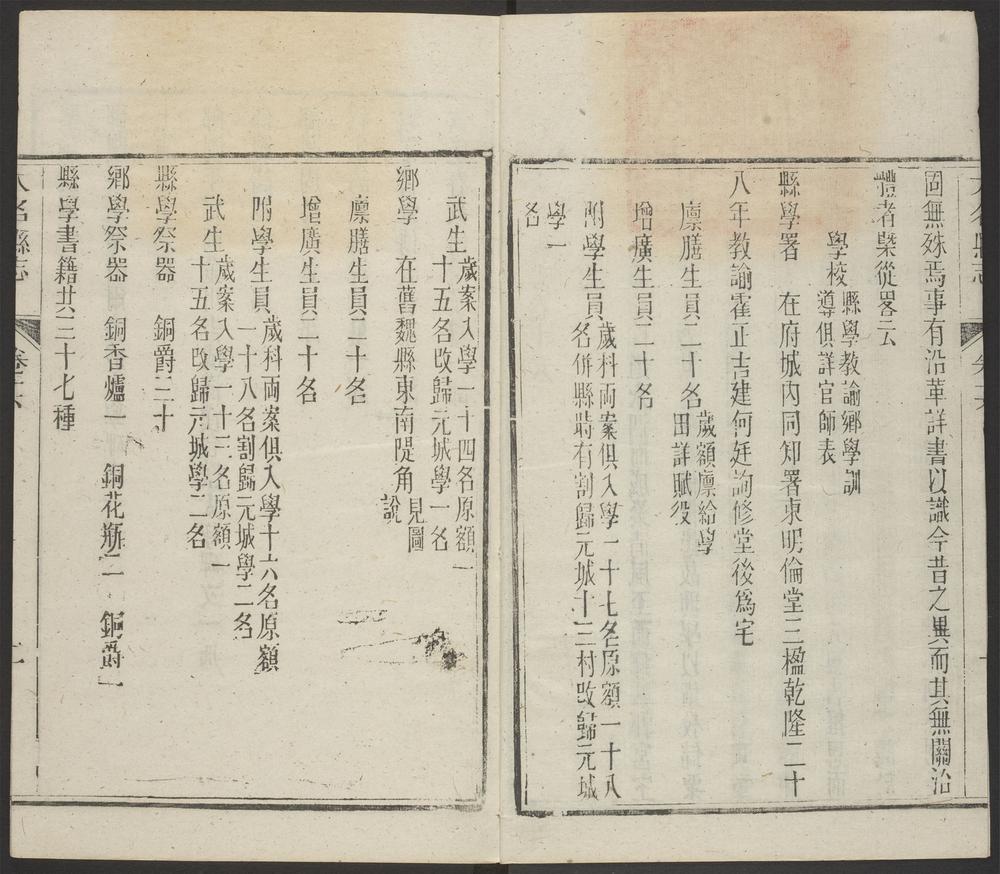 固無殊焉事有沿革詳書以識今昔之異而其無關治
體者槩從畧云
學校
縣學教諭鄉學訓
導俱詳官師表
縣學署 在府城內同知署東明倫堂三楹乾隆二十
八年教諭霍正吉建何廷詢修堂後爲宅
廩膳生員二十名
歲額廩給學
田詳賦役
增廣生員二十名
附學生員
歲科兩案俱入學一十七名原額一十八
名併縣時有割歸元城十三村改歸元城
學一
名
武生
歲案入學一十四名原額一
十五名改歸元城學一名
鄉學 在舊魏縣東南隄角
見圖
說
廩膳生員二十名
增廣生員二十名
附學生員
歲科兩案俱入學十六名原額
一十八名割歸元城學二名
武生
歲案入學一十三名原額一
十五名改歸元城學二名
縣學祭器 銅爵三十
鄉學祭器 銅香爐一 銅花瓶二 銅爵一
縣學書籍共三十七種
大名縣志